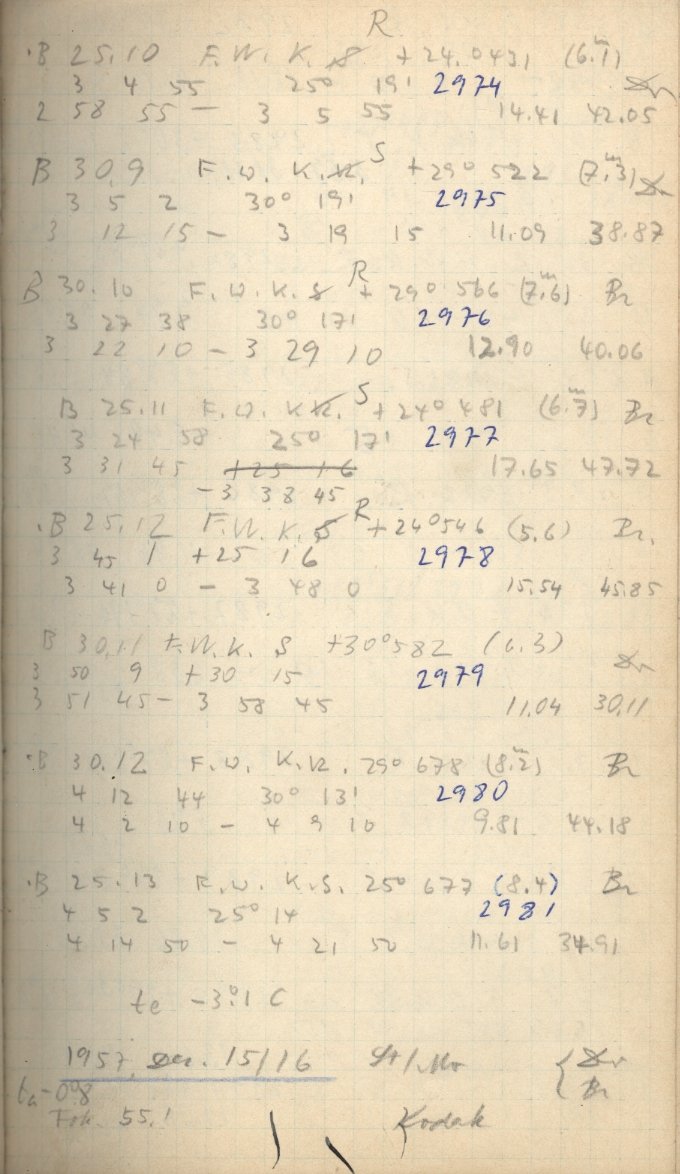 R
B 25.10 F.W. K. S +24.0431 (6.1)
3 4 55 25° 19' 2974
2 58 55 – 3 5 55 14.41 42.05
B 30.9 F.W. K.R. S +29° 522 (7.3)
3 5 2 30° 19' 2975
3 12 15 – 3 19 15 11.09 38.87
B 30.10 F.W. K. S R +29° 566 (7.6) Br
3 27 38 30° 17' 2976
3 22 10 – 3 29 10 12.90 40.06
B 25.11 F.W. K R. S +24° 481 (6.7) Br
3 24 58 25° 17' 2977
3 31 45 +25 16 17.65 47.72
– 3 38 45
B 25.12 F.W. K. S R +24° 546 (5.6) Br.
3 45 1 +25 16 2978
3 41 0 – 3 48 0 15.54 45.85
B 30.11 F.W. K. S +30° 582 (6.3)
3 50 9 +30 15 2979
3 51 45 – 3 58 45 11.04 30.11
B 30.12 F.W. K.R. 29° 678 (8.2) Br
4 12 44 30° 13' 2980
4 2 10 – 4 9 10 9.81 44.18
B 25.13 F.W. K.S. 25° 677 (8.4) Br
4 5 2 25° 14 2981
4 14 50 – 4 21 50 11.61 34.91
te –3.°1 C
1957 Dec. 15/16 St/Mr
ta –0°8 Br
Fok. 55.1 Kodak